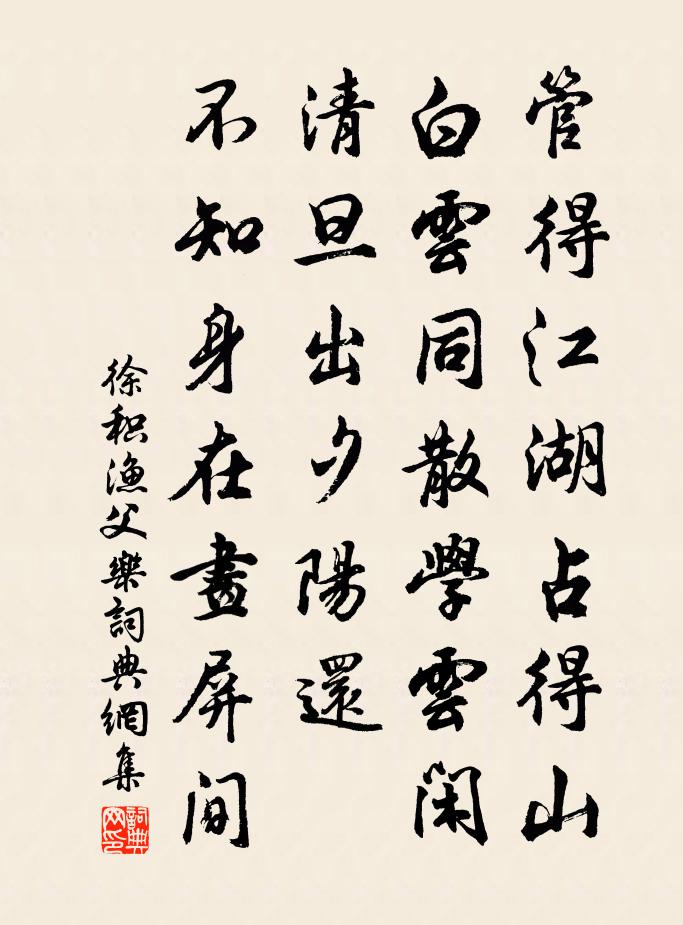 管得江湖占得山
白雲同散學雲閑
清旦出夕陽還
不知身在畫屏間
徐积漁父樂詞典網集
詞典網印